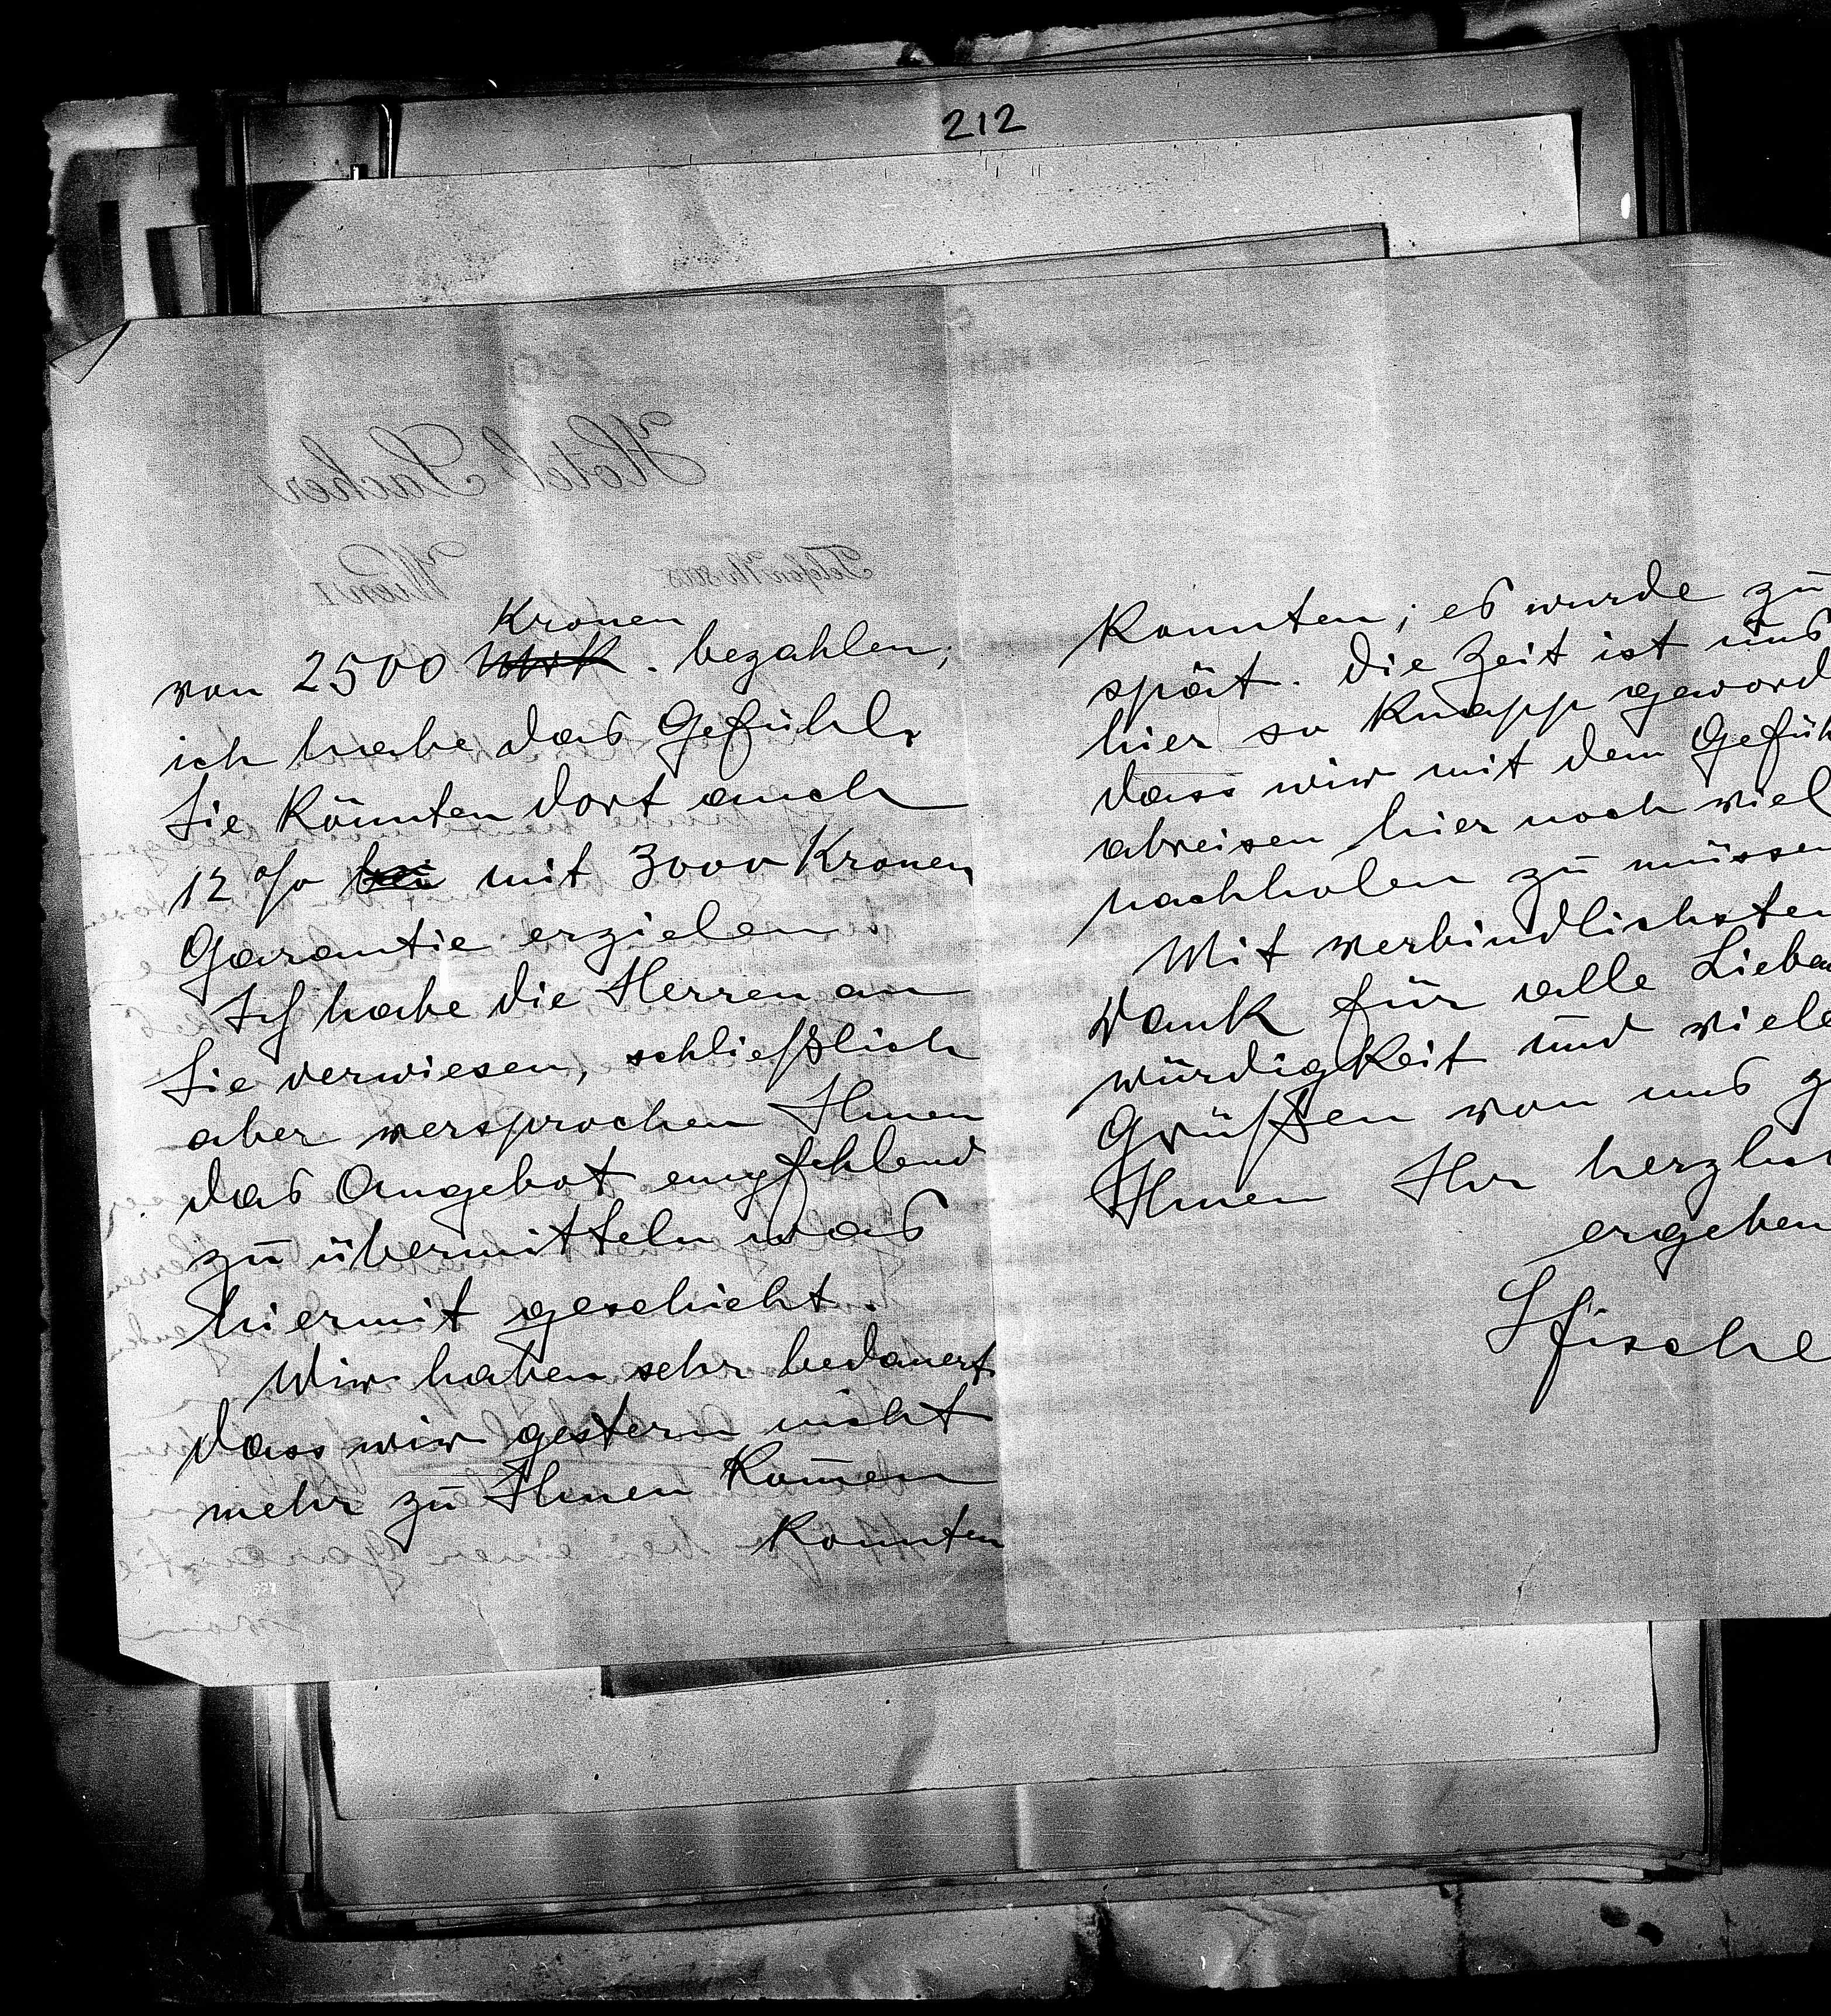 212
Hotel Sacher
Telefon
Wien I
Kronen
von 2500 Mrk. bezahlen;
ich habe das Gefühl,
Sie könnten dort auch
12 % bei mit 3000 Kronen
Garantie erzielen
Ich habe die Herren an
Sie verwiesen, schließlich
aber versprochen Ihnen
das Angebot empfehlend
zu übermitteln was
hiermit geschieht.
Wir haben sehr bedauert
dass wir gestern nicht
mehr zu Ihnen kom̄en
konnten
konnten; es wurde zu
spät. Die Zeit ist uns
hier so knapp geword
dass wir mit dem Gefüh
abreisen hier noch viel
nachholen zu müssen
Mit verbindlichsten
Dank für alle Liebe
würdigkeit und viele
Grüßen von uns z
Ihnen Ihr herzlic
ergeben
SFische